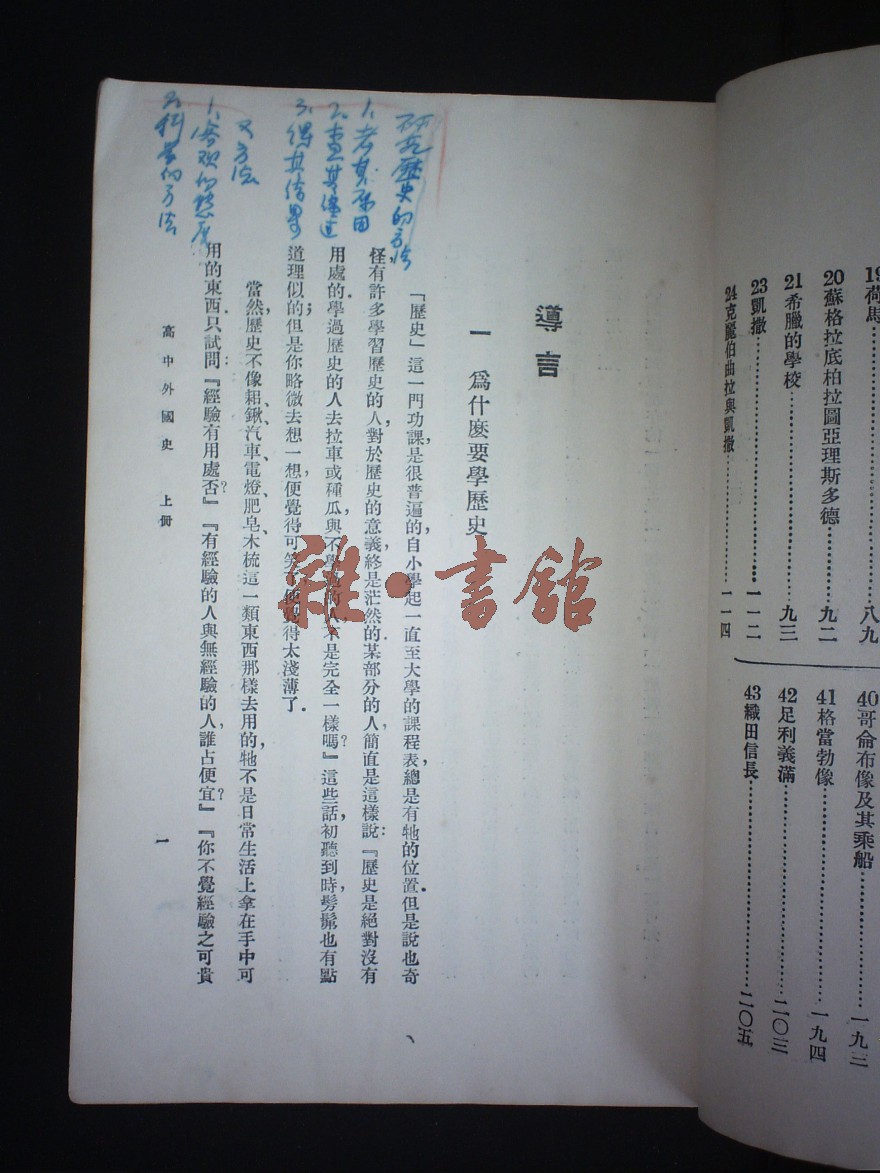 19荷馬……八九
20蘇格拉底柏拉圖亞理斯多德……九二
21希臘的學校……九三
23凱撒……一一二
24克麗伯曲拉與凱撒……一一四
40哥侖布像及其乘船……一九三
41格當勃像……一九四
42足利義滿……二〇三
43織田信長……二〇五
導言
一 爲什麽要學歷史
『歷史』這一門功課，是很普遍的，自小學起一直至大學的課程表，總是有牠的位置．但是說也奇
怪，有許多學習歷史的人，對於歷史的意義，終是茫然的．某部分的人，簡直是這樣說：『歷史是絕對沒有
用處的．學過歷史的人去拉車或種瓜，與不學過的人不是完全一樣嗎？』這些話，初聽到時，髣髴也有點
道理似的；但是你略微去想一想，便覺得可笑，便覺得太淺薄了．
當然，歷史不像耜、鍬、汽車、電燈、肥皂、木梳這一類東西那樣去用的，牠不是日常生活上拿在手中可
用的東西．只試問：『經驗有用處否？』『有經驗的人與無經驗的人，誰占便宜？』『你不覺經驗之可貴
高中外國史 上冊
一
研究歷史的方法
1、考其原因
2、查其
3、偶其結果
又方法
1、客观的態度
2、科学的方法
雜·書館